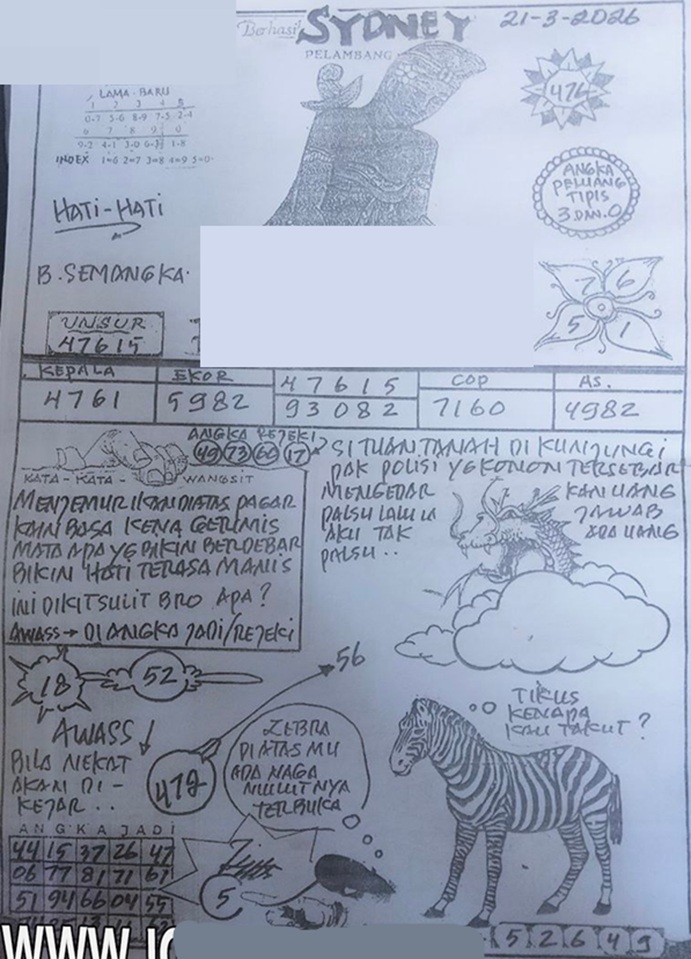 Berhasil SYDNEY 21-3-2026
PELAMBANG
LAMA - BARU
1 2 3 4 5
0-7 5-6 8-9 7-5 2-4
6 7 8 9 0
9-2 4-1 3-0 1-8
INDEX 1=6 2=7 3=8 4=9 5=0
476
HATI-HATI
ANGKA
PELUANG
TIPIS
3 DAN 0
B. SEMANGKA
7 6
5 1
UNSUR
47615
KEPALA EKOR 47615 COP AS.
4761 5982 93082 7160 4982
ANGKA REJEKI
49 73 60 17
KATA - KATA - WANGSIT
MENJEMUR IKAN DIATAS PAGAR
KAIN BASA KENA GERIMIS
MATA ADA YG BIKIN BERDEBAR
BIKIN HATI TERASA MANIS
INI DIKIT SULIT BRO APA?
AWASS → DI ANGKA JADI/REJEKI
SI TUAN TANAH DI KUNJUNGI
PAK POLISI YG KONON TERSEBAR
MENGEDAR KAN UANG
PALSU LALU IA JAWAB
AKU TAK ADA UANG
PALSU..
18 52
56
AWASS!
BILA NEKAT
AKAN DI-
KEJAR..
472
ZEBRA
DIATAS MU
ADA NAGA
MULUTNYA
TERBUKA
TIKUS
KENAPA
KAU TAKUT?
ANGKA JADI
44 15 37 26 47
06 77 81 71 61
51 94 66 04 55
7
5
5 2 6 4 9
WWW.